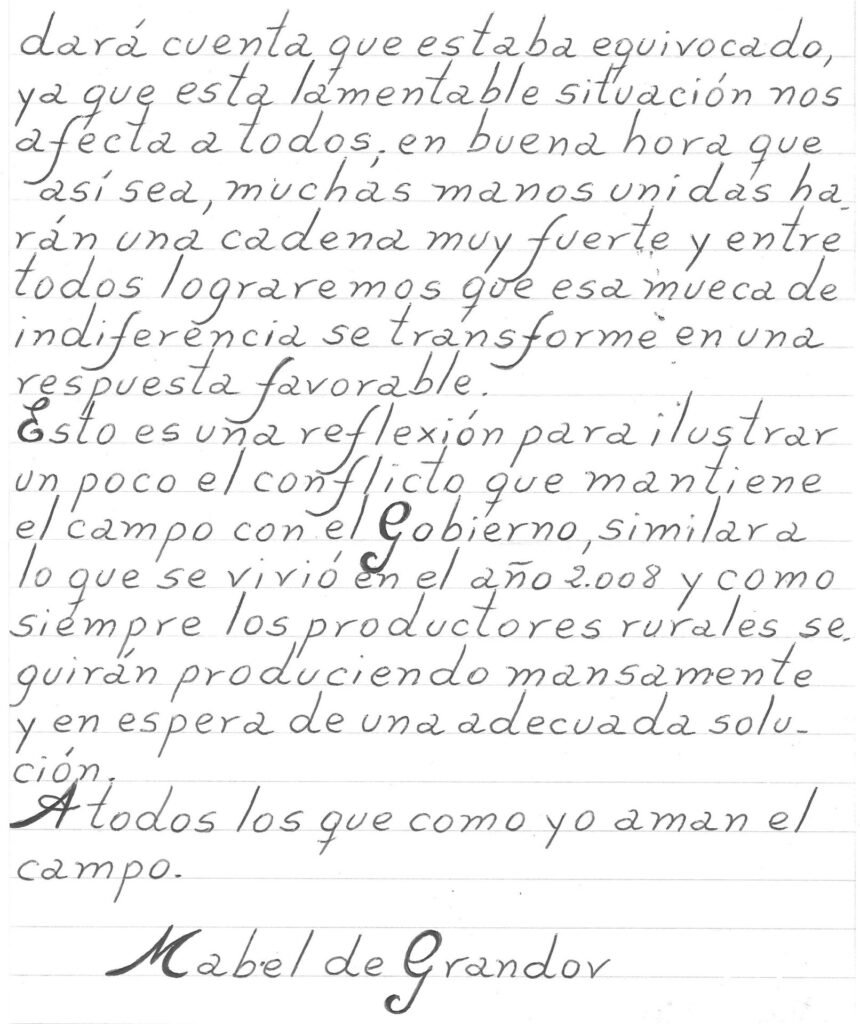 dará cuenta que estaba equivocado,
ya que esta lamentable situación nos
afecta a todos; en buena hora que
así sea, muchas manos unidas ha-
rán una cadena muy fuerte y entre
todos lograremos que esa mueca de
indiferencia se transforme en una
respuesta favorable.
Esto es una reflexión para ilustrar
un poco el conflicto que mantiene
el campo con el Gobierno, similar a
lo que se vivió en el año 2.008 y como
siempre los productores rurales se-
guirán produciendo mansamente
y en espera de una adecuada solu-
ción.
A todos los que como yo aman el
campo.
Mabel de Grandov